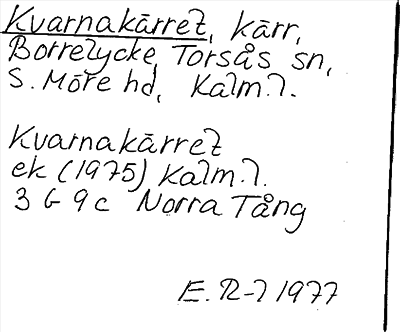 Kvarnakärret, kärr,
Borrelycke, Torsås sn,
S. Möre hd, Kalm.l.
Kvarnakärret
ek (1975) Kalm.l.
3 G 9 c Norra Tång
E. R-l 1977